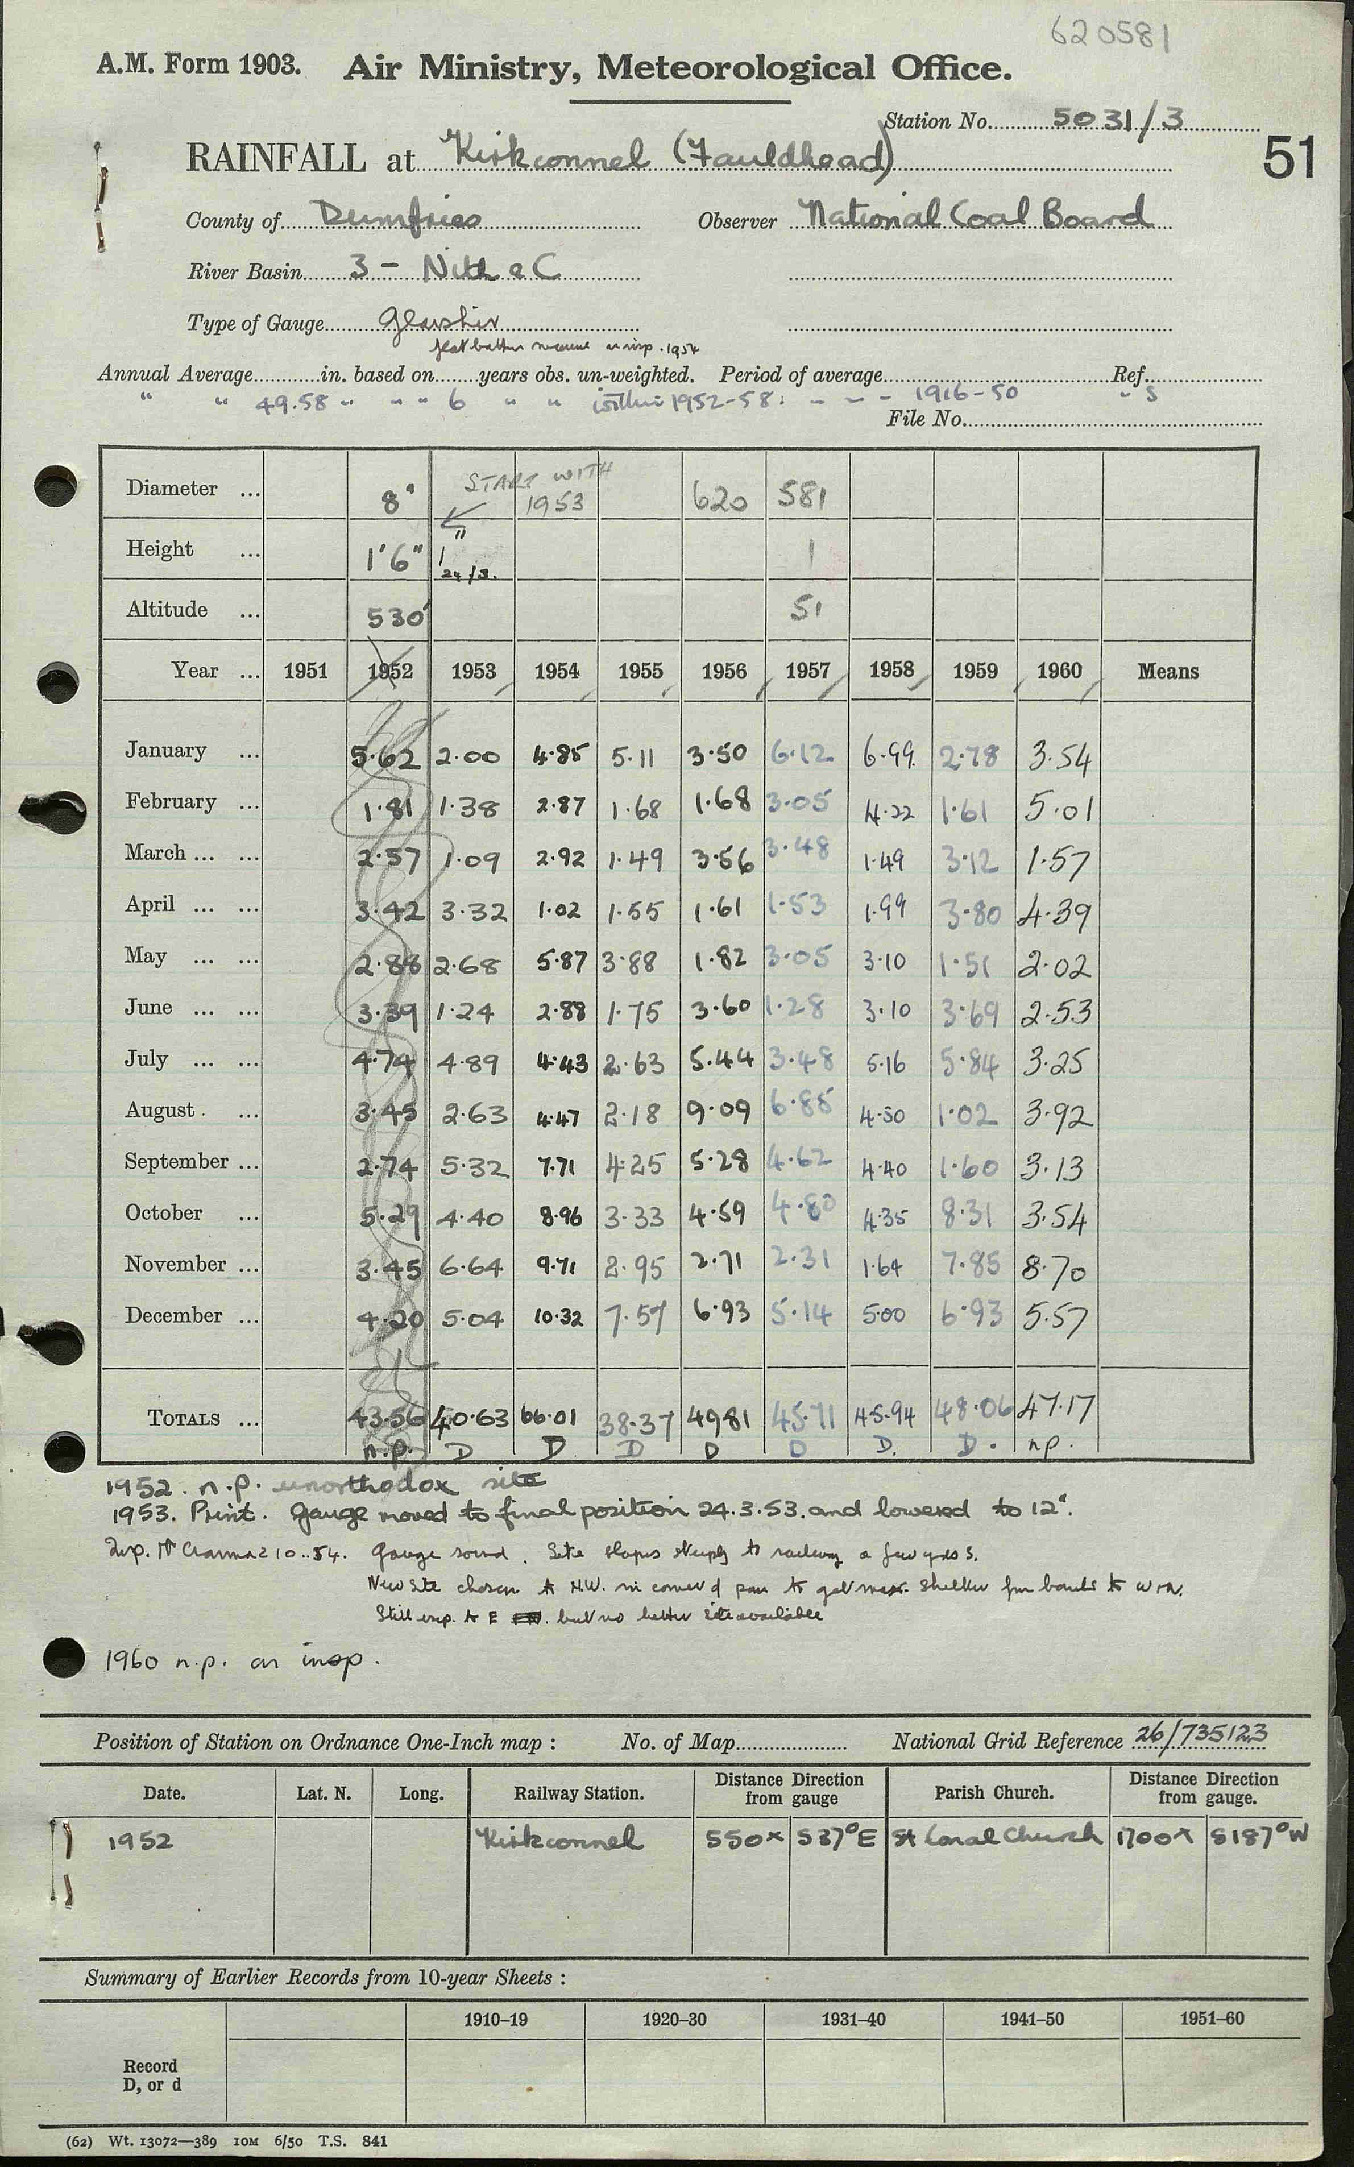 620581
A.M. Form 1903. Air Ministry, Meteorological Office.
Station No. 5031/3
RAINFALL at Kirkconnel (Fauldhead)
51
County of Dumfries Observer National Coal Board
River Basin 3 - Nith & C
Type of Gauge
insp. 1954
Annual Average in. based on years obs. un-weighted. Period of average Ref.
" " 49.58 " " " 6 " " within 1952-58: - - - 1916-50 " S
File No.
Diameter ... 8" START WITH 1953 620 581
Height ... 1'6" 1" 24/3. 1
Altitude ... 530' 51
Year ... 1951 1952 1953 1954 1955 1956 1957 1958 1959 1960 Means
January ... 5.62 2.00 4.85 5.11 3.50 6.12 6.99 2.78 3.54
February ... 1.81 1.38 2.87 1.68 1.68 3.05 4.22 1.61 5.01
March ... ... 2.57 1.09 2.92 1.49 3.56 3.48 1.49 3.12 1.57
April ... ... 3.42 3.32 1.02 1.55 1.61 1.53 1.99 3.80 4.39
May ... ... 2.88 2.68 5.87 3.88 1.82 3.05 3.10 1.51 2.02
June ... ... 3.39 1.24 2.88 1.75 3.60 1.28 3.10 3.69 2.53
July ... ... 4.74 4.89 4.43 2.63 5.44 3.48 5.16 5.84 3.25
August . ... 3.45 2.63 4.47 2.18 9.09 6.85 4.50 1.02 3.92
September ... 2.74 5.32 7.71 4.25 5.28 4.62 4.40 1.60 3.13
October ... 5.29 4.40 8.96 3.33 4.59 4.80 4.35 8.31 3.54
November ... 3.45 6.64 9.71 2.95 2.71 2.31 1.64 7.85 8.70
December ... 4.20 5.04 10.32 7.57 6.93 5.14 5.00 6.93 5.57
TOTALS ... 43.56 40.63 66.01 38.37 49.81 45.71 45.94 48.06 47.17
n.p. D D D D D D. D. n.p.
1952. n.p. unorthodox site
1953. Print. Gauge moved to final position 24.3.53. and lowered to 12".
Insp. 10.54. Gauge sound. Site slopes steeply to railway a few yds S.
New site chosen to N.W. in corner of to get max. shelter to W
Still exp. to E but no better site available
1960 n.p. on insp.
Position of Station on Ordnance One-Inch map : No. of Map National Grid Reference 26/735123
Date. Lat. N. Long. Railway Station. Distance from gauge Direction Parish Church. Distance from gauge. Direction
1952 Kirkconnel 550x S37°E St Conal Church 1700x S187°W
Summary of Earlier Records from 10-year Sheets :
1910–19 1920–30 1931–40 1941–50 1951–60
Record
D, or d
(62) Wt. 13072—389 10M 6/50 T.S. 841